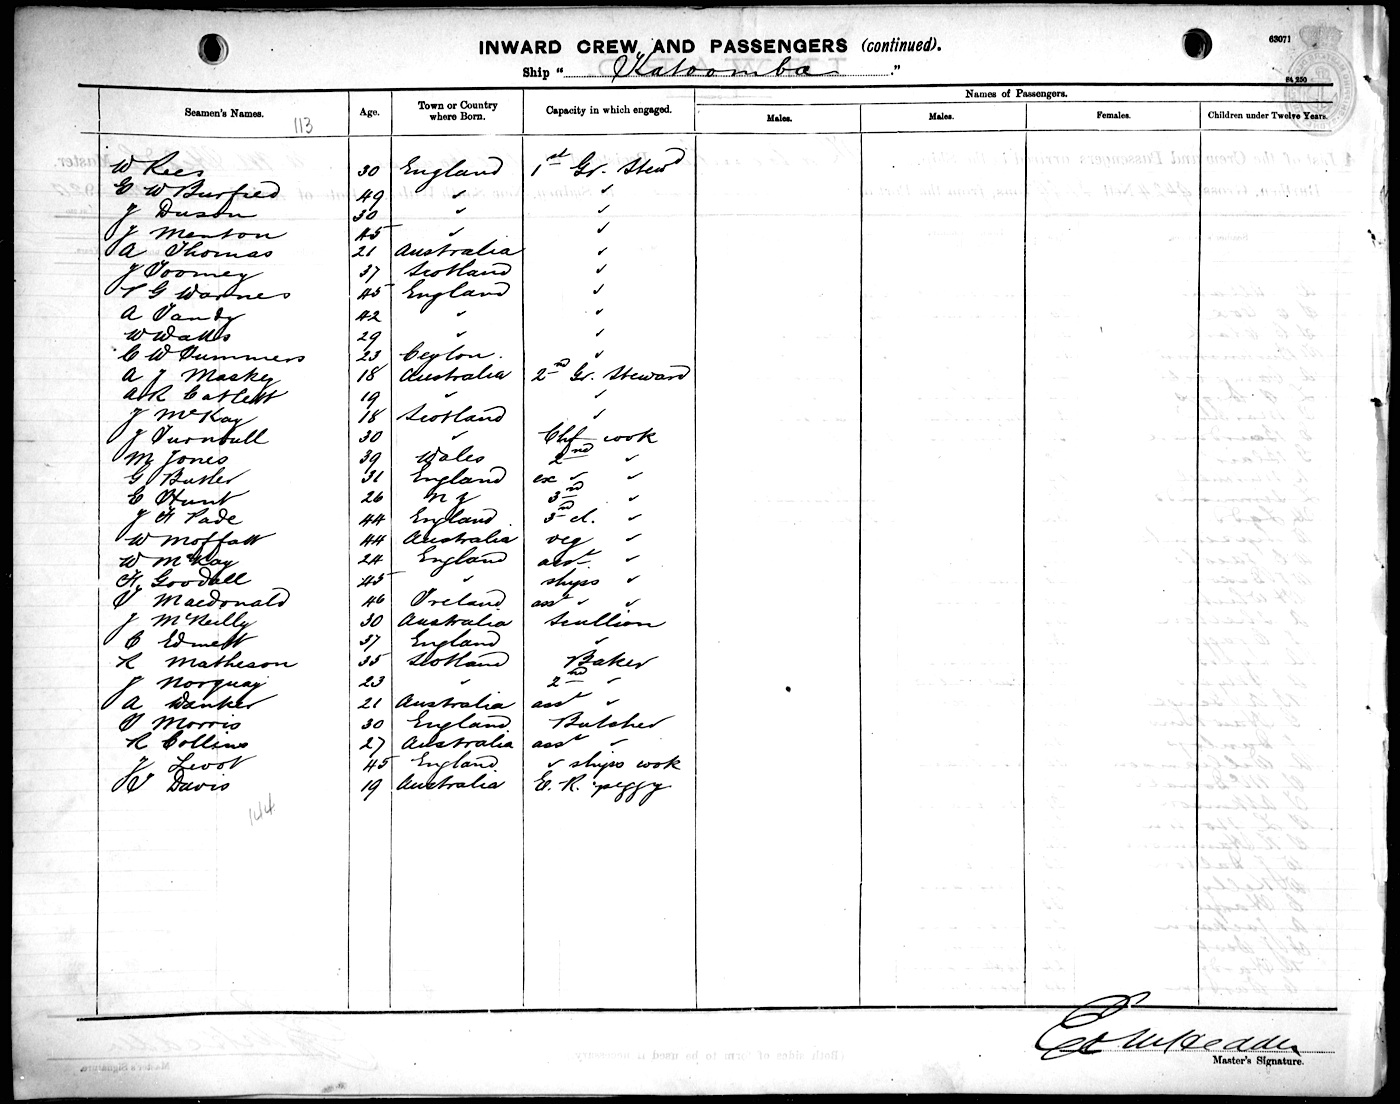 INWARD CREW AND PASSENGERS (continued).
63071
Ship " Katoomba "
84 250
Seamen's Names.
Age.
Town or Country where Born.
Capacity in which engaged.
Names of Passengers.
Males.
Males.
Females.
Children under Twelve Years.
113
W Rees 30 England 1st Gr. Stewd
G W Burfied 49 " "
J Duson 30 " "
J Menton 45 " "
A Thomas 21 Australia "
J Toomey 37 Scotland "
G Warnes 45 England "
A Tandy 42 " "
W Watts 29 " "
C W Summers 23 Ceylon. "
A J Maskey 18 Australia 2nd Gr. Steward
A R Catlett 19 " "
J McKay 18 Scotland "
J Turnbull 30 " Chf cook
M Jones 39 Wales 2nd "
G Butler 31 England ex " "
C Hunt 26 N Z 3rd "
J H Pade 44 England 3rd cl. "
W Moffatt 44 Australia veg "
W McKay 24 England asst. "
H Goodall 45 " ships "
T Macdonald 46 Ireland asst " "
J McReilly 30 Australia Scullion
C Edmett 37 England "
R Matheson 35 Scotland Baker
J Norquay 23 " 2nd "
A Danker 21 Australia asst "
T Morris 30 England Butcher
R Collins 27 Australia asst "
J Levot 45 England " ships cook
V Davis 19 Australia E. R. peggy
144
Master's Signature.